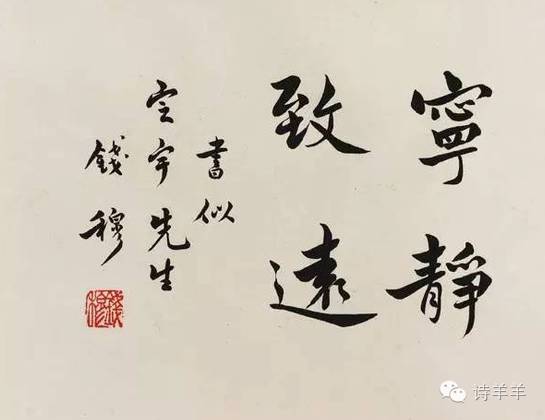 寧靜
致遠
書似
定宇先生
錢穆
錢穆
诗羊羊